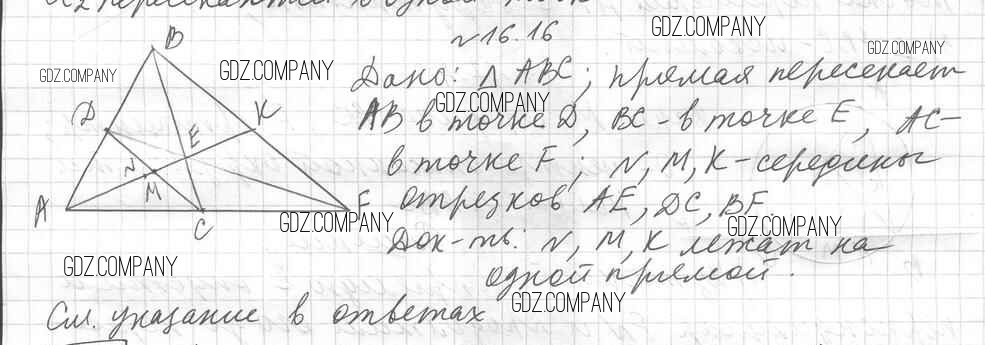 пересекаются в одной точке
№16.16
GDZ.COMPANY
GDZ.COMPANY
GDZ.COMPANY
GDZ.COMPANY
Дано: △ ABC; прямая пересекает
GDZ.COMPANY
AB в точке D, BC - в точке E, AC -
в точке F; N, M, K - середины
отрезков AE, DC, BF.
GDZ.COMPANY
GDZ.COMPANY
Док-ть: N, M, K лежат на
одной прямой.
GDZ.COMPANY
GDZ.COMPANY
См. указание в ответах
B
D
K
E
N
M
A
C
F